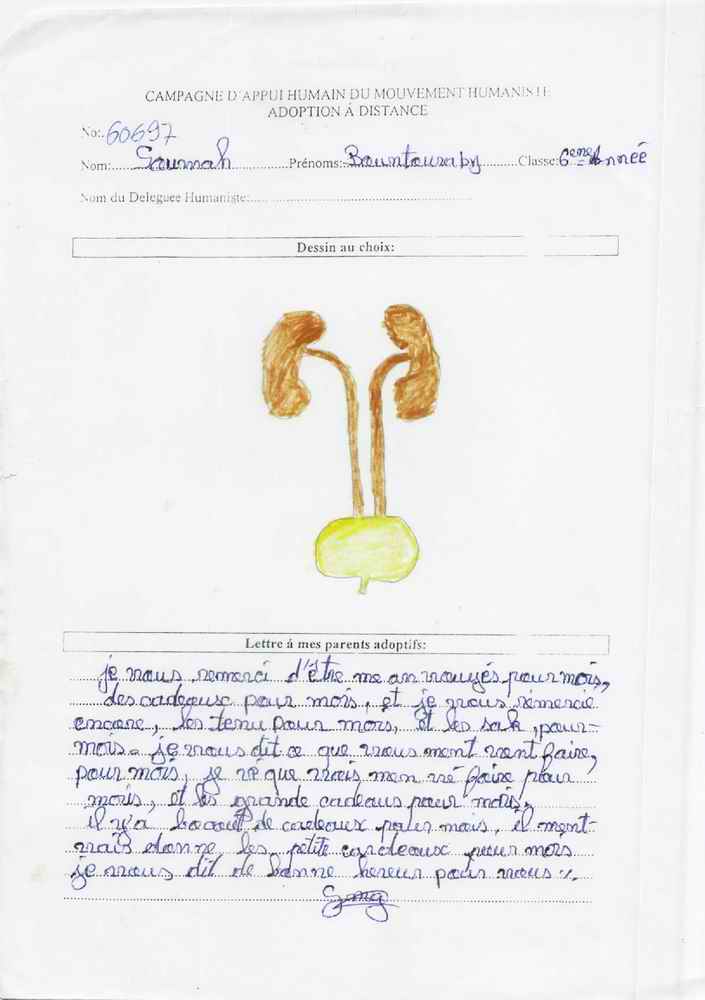 CAMPAGNE D'APPUI HUMAIN DU MOUVEMENT HUMANISTE
ADOPTION Á DISTANCE
No:.60697
Nom: Soumah Prénoms: Bountouraby Classe: 6eme Année
Nom du Deleguee Humaniste:
Dessin au choix:
Lettre á mes parents adoptifs:
je vous remerci d'être me anvouyés pour mois,
des cadeaux pour mois, et je vous rémercie
encore, les tenu pour mois, et les sak, pour-
mois. je vous dit ce que vous ment vent faire,
pour mois, je vé que vais men vé faire pour
mois, et les grande cadeaus pour mois,
il y'a de cadeaux pour mois, il ment-
vais donne les petite cardeaux pour mois
je vous dit de bonne hereur pour vous